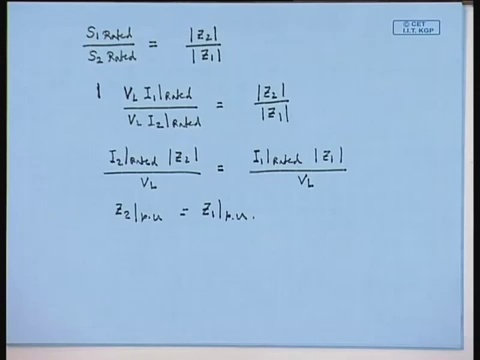 © CET
I.I.T. KGP
S1 Rated / S2 Rated = |Z2| / |Z1|
VL I1|Rated / VL I2|Rated = |Z2| / |Z1|
I2|Rated |Z2| / VL = I1|Rated |Z1| / VL
Z2|p.u = Z1|p.u.